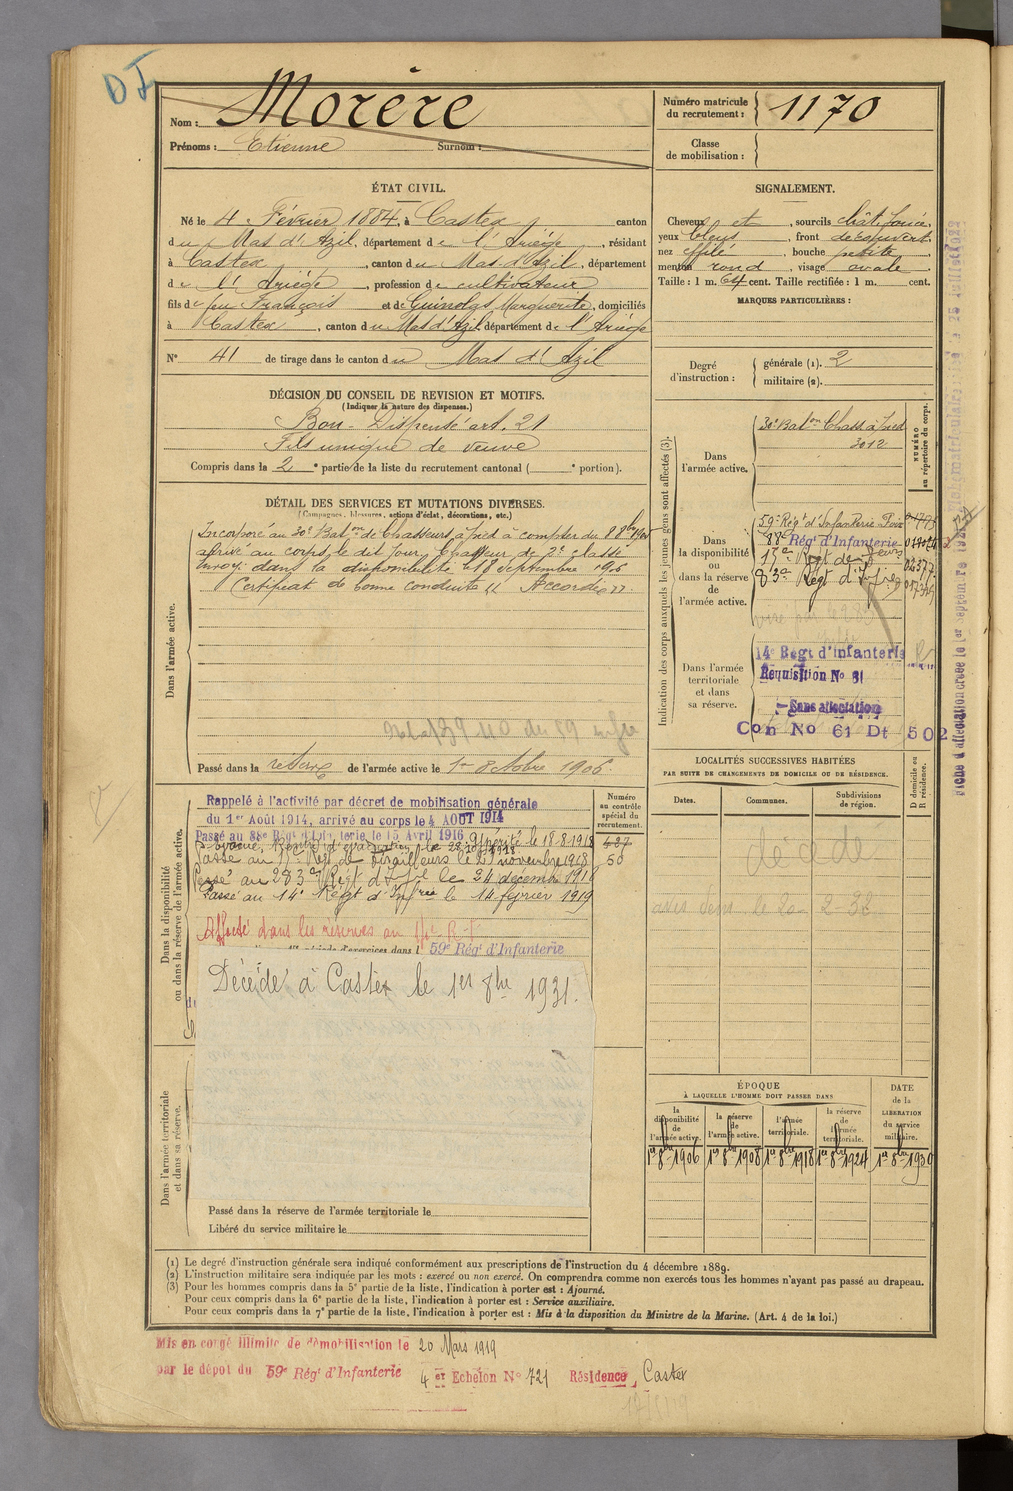 DJ
Nom : Morère
Prénoms : Etienne Surnom :
Numéro matricule du recrutement : 1170
Classe de mobilisation :
ÉTAT CIVIL.
Né le 4 Février 1884, à Castex, canton
du Mas d'Azil, département de l'Ariège, résidant
à Castex, canton du Mas d'Azil, département
de l'Ariège, profession de cultivateur
fils de feu François et de Guinolas Marguerite, domiciliés
à Castex, canton du Mas d'Azil, département de l'Ariège
N° 41 de tirage dans le canton du Mas d'Azil
SIGNALEMENT.
Cheveux et, sourcils chât. foncé,
yeux bleus, front découvert,
nez effilé, bouche petite,
menton rond, visage ovale.
Taille : 1 m. 64 cent. Taille rectifiée : 1 m. cent.
MARQUES PARTICULIÈRES :
Degré d'instruction : générale (1). 2
militaire (2).
DÉCISION DU CONSEIL DE REVISION ET MOTIFS.
(Indiquer la nature des dispenses.)
Bon - Dispensé art. 21
Fils unique de veuve
Compris dans la 2e partie de la liste du recrutement cantonal ( e portion).
DÉTAIL DES SERVICES ET MUTATIONS DIVERSES.
(Campagnes, blessures, actions d'éclat, décorations, etc.)
Dans l'armée active.
Incorporé au 30e Baton de Chasseurs à pied à compter du 8 8bre 1905
arrivé au corps le dit jour, Chasseur de 2e classe
Envoyé dans la disponibilité le 18 septembre 1906
Certificat de bonne conduite "Accordé".
Passé dans la réserve de l'armée active le 1er Octobre 1906.
Indication des corps auxquels les jeunes gens sont affectés (3).
NUMÉRO au répertoire du corps.
Dans l'armée active.
30e Baton Chass à pied
3012
Dans la disponibilité ou dans la réserve de l'armée active.
59e Régt d'Infanterie Foix
88e Rég' d'Infanterie
83e Régt d'Infie
Dans l'armée territoriale et dans sa réserve.
14e Régt d'infanterie
Requisition No 31
Sans affectation
Con No 61 Dt 502
Dans la disponibilité ou dans la réserve de l'armée active.
Numéro au contrôle spécial du recrutement.
427
50
Rappelé à l'activité par décret de mobilisation générale
du 1er Août 1914, arrivé au corps le 4 AOUT 1914
Passé au 88e Rég' d'Infanterie le 15 Avril 1916
Passé au Régt de Tirailleurs le 21 novembre 1918
Passé au 283e Régt d'Infie le 24 décembre 1918
Passé au 14e Régt d'Infrie le 14 février 1919
Affecté dans les réserves au
59e Rég' d'Infanterie
Décédé à Castex le 1er 8bre 1931.
LOCALITÉS SUCCESSIVES HABITÉES
PAR SUITE DE CHANGEMENTS DE DOMICILE OU DE RÉSIDENCE.
Dates. Communes. Subdivisions de région. D domicile ou R résidence.
décédé
Dans l'armée territoriale et dans sa réserve.
Passé dans la réserve de l'armée territoriale le
Libéré du service militaire le
ÉPOQUE
À LAQUELLE L'HOMME DOIT PASSER DANS
la disponibilité de l'armée active.
la réserve de l'armée active.
l'armée territoriale.
la réserve de l'armée territoriale.
DATE de la LIBÉRATION du service militaire.
1er 8bre 1906 1er 8bre 1908 1er 8bre 1918 1er 8bre 1924 1er 8bre 1930
(1) Le degré d'instruction générale sera indiqué conformément aux prescriptions de l'instruction du 4 décembre 1889.
(2) L'instruction militaire sera indiquée par les mots : exercé ou non exercé. On comprendra comme non exercés tous les hommes n'ayant pas passé au drapeau.
(3) Pour les hommes compris dans la 5e partie de la liste, l'indication à porter est : Ajourné.
Pour ceux compris dans la 6e partie de la liste, l'indication à porter est : Service auxiliaire.
Pour ceux compris dans la 7e partie de la liste, l'indication à porter est : Mis à la disposition du Ministre de la Marine. (Art. 4 de la loi.)
Mis en congé illimité de démobilisation le 20 Mars 1919
par le dépôt du 59e Rég' d'Infanterie 4 er Echelon N° 721 Résidence Castex